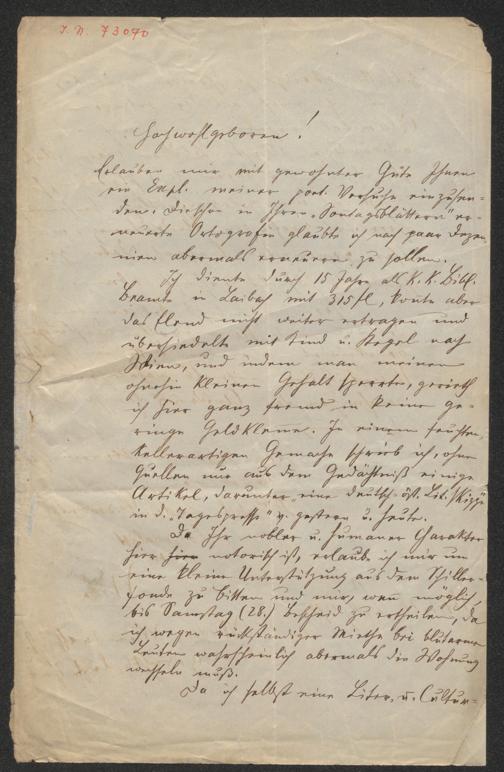 I. N. 73090
Hochwohlgeboren!
Erlauben mir mit gewohnter Güte Ihnen
ein Expl. meiner poet. Versuche einzusen-
den. Dieselben in Ihren „Sontagsblättern" er-
neuerte Ortografie glaubte ich nach paar Dezen
nien abermals erneuern zu sollen.
Ich diente durch 15 Jahre als K. K. Bibl.
Beamte in Laibach mit 315 fl, konte aber
das Elend nicht weiter ertragen und
übersiedelte mit Kind u. Kegel nach
Wien, und indem man meinen
ohnehin kleinen Gehalt sperrte, gerieth
ich hier ganz fremd in keine ge-
ringe Geldkleme. In einem feuchten,
kellerartigen Gemache schrieb ich, ohne
Quellen nur aus dem Gedächtniß einige
Artikel, darunter eine deutsch-öst. Lit. Skizze
in d. „Tagespresse" v. gestern u. heute.
Da Ihr nobler u. humaner Charakter
hier notorisch ist, erlaub ich mir um
eine kleine Unterstützung aus dem Schiller-
fonde zu bitten und mir, wen möglich
bis Samstag (28.) Bescheid zu ertheilen, da
ich wegen rückständiger Miethe bei blutarmen
Leuten wahrscheinlich abermals die Wohnung
wechseln muß.
Da ich selbst eine Liter. u. Cultur-